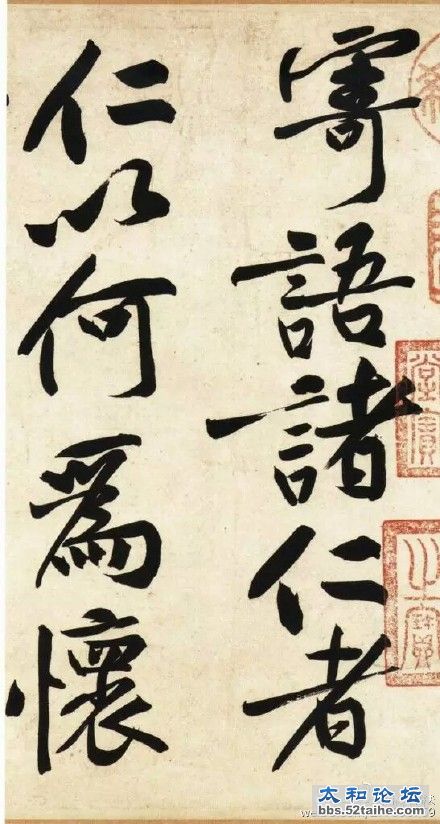 寄語諸仁者
仁以何爲懷
太和论坛
bbs.52taihe.com